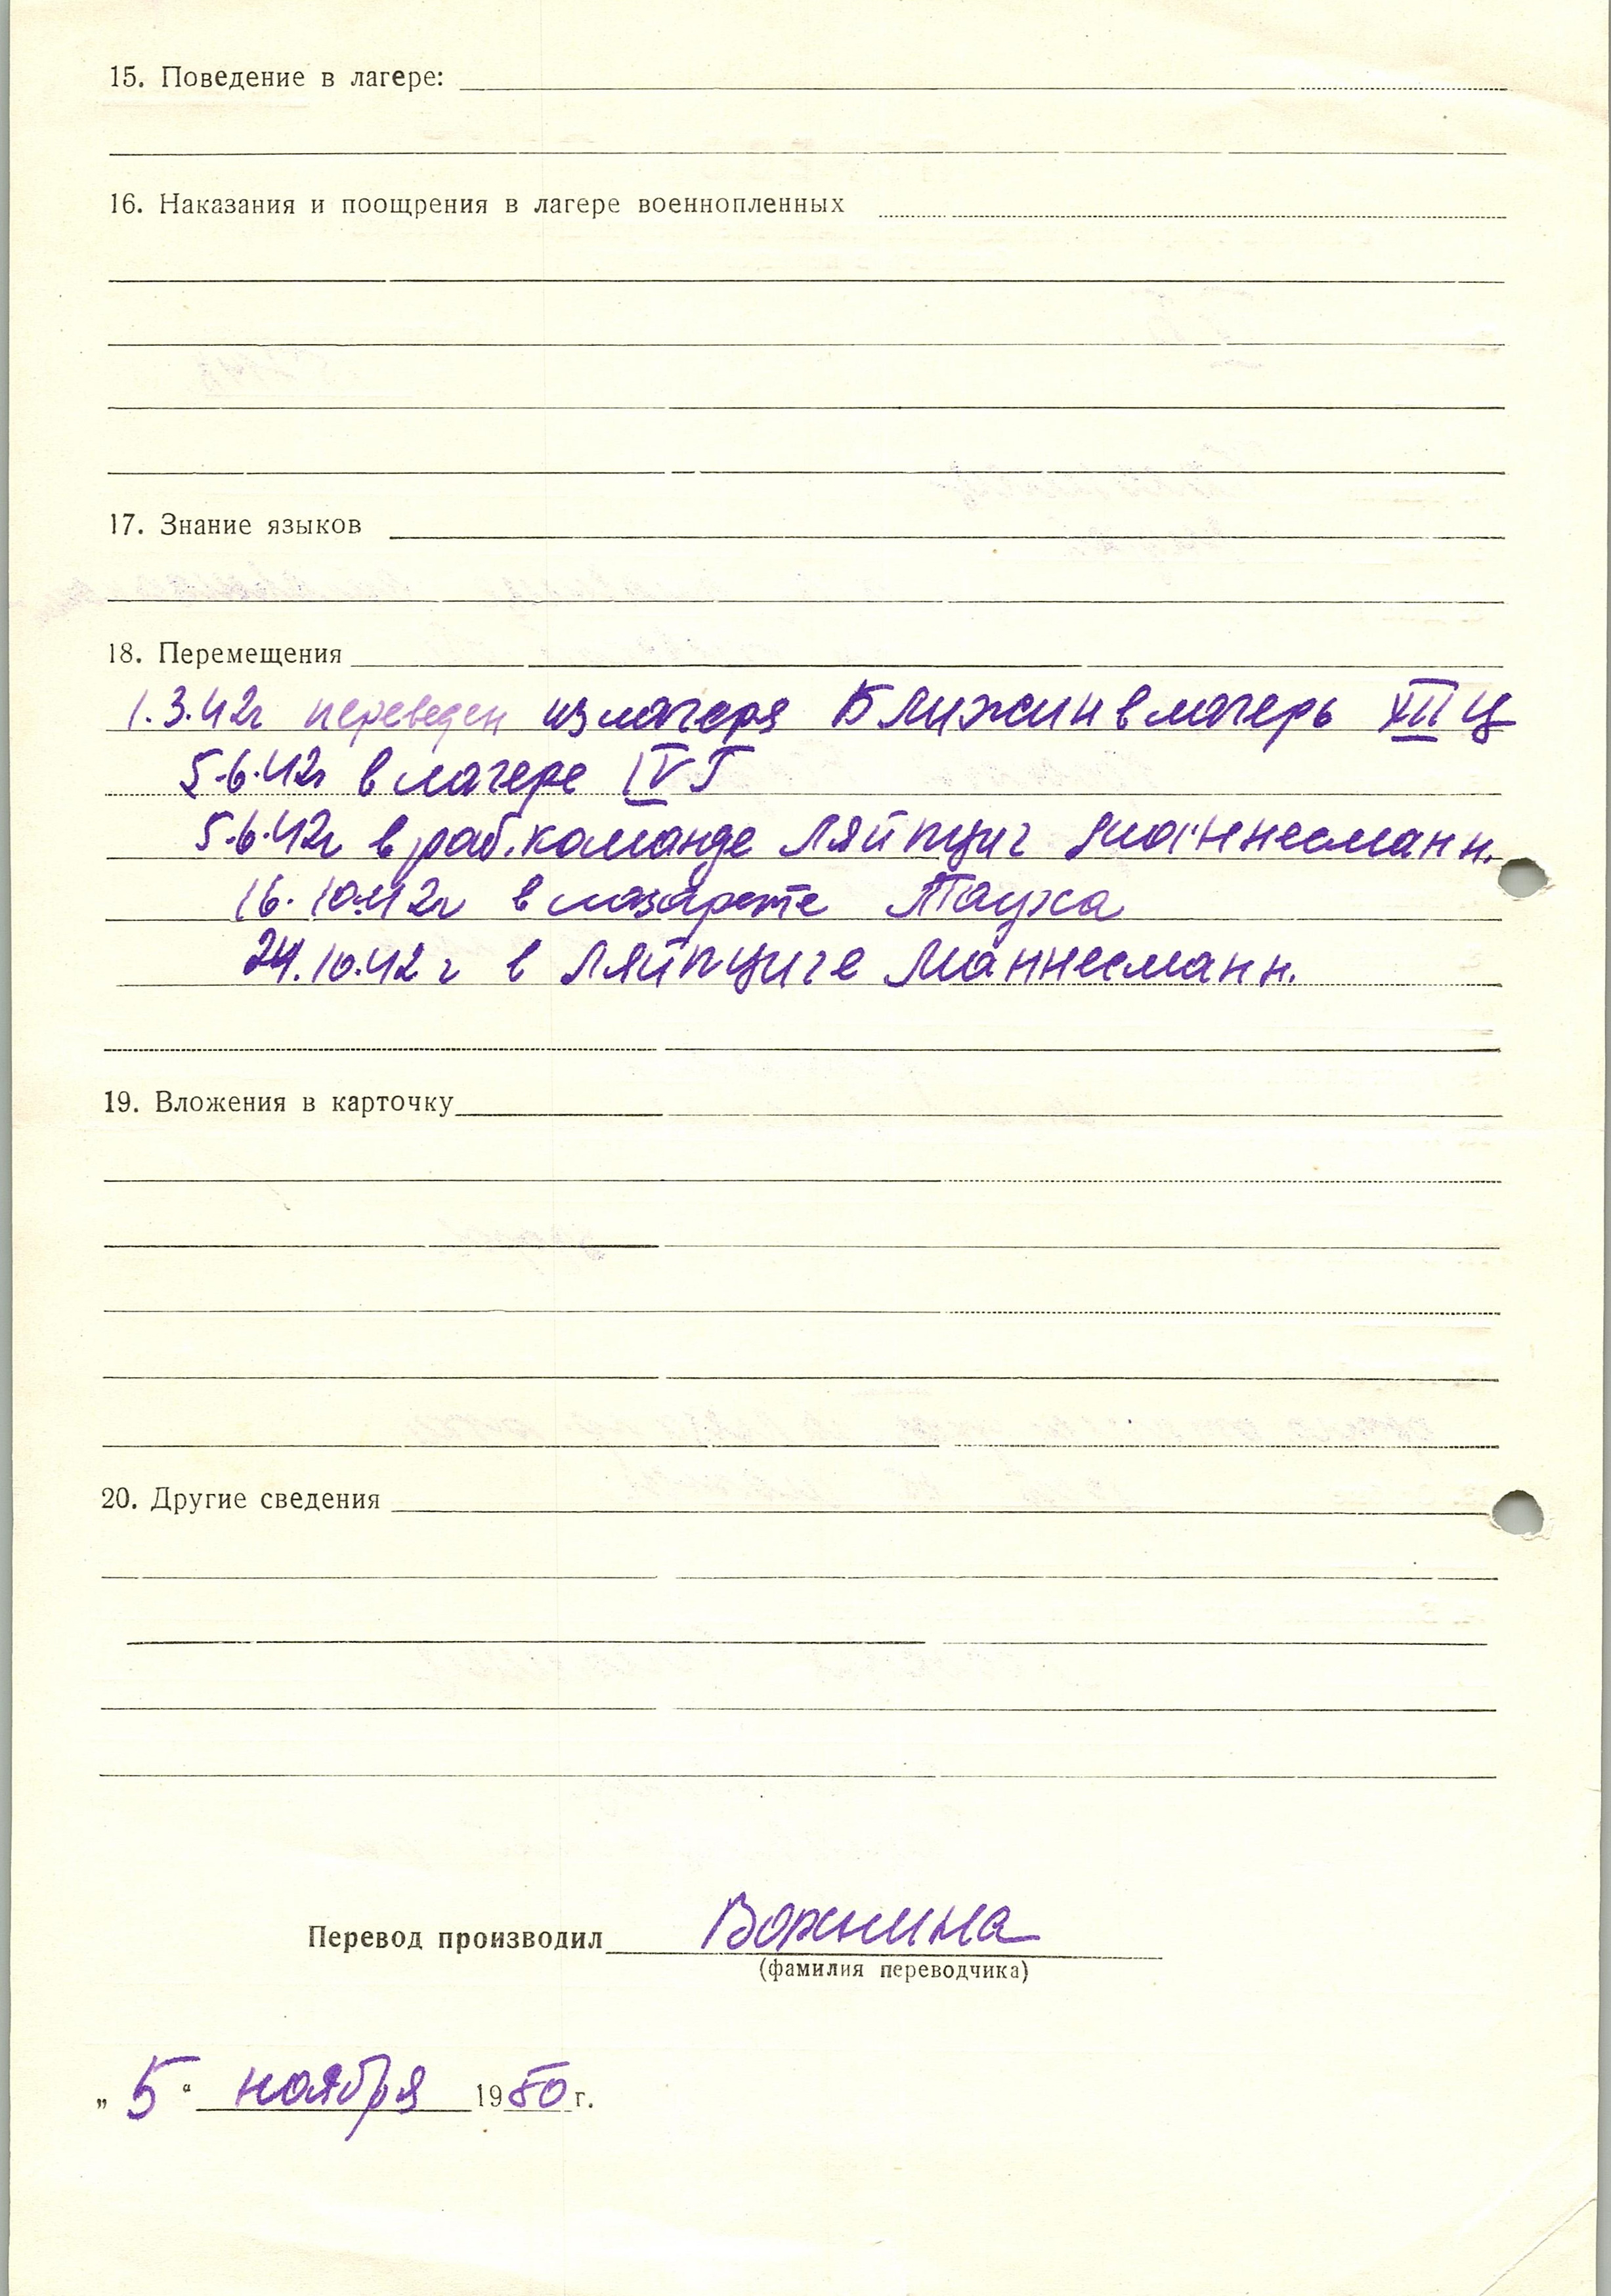 15. Поведение в лагере:
16. Наказания и поощрения в лагере военнопленных
17. Знание языков
18. Перемещения
1.3.42г переведен из лагеря Ближин в лагерь XII Ц
5.6.42г в лагере IV Г
5.6.42г в раб. команде Ляйпциг Маннесманн.
16.10.42г в лазарете Тауха
24.10.42г в Ляйпциге Маннесманн.
19. Вложения в карточку
20. Другие сведения
Перевод производил Воронина
(фамилия переводчика)
„ 5 “ ноября 1950 г.